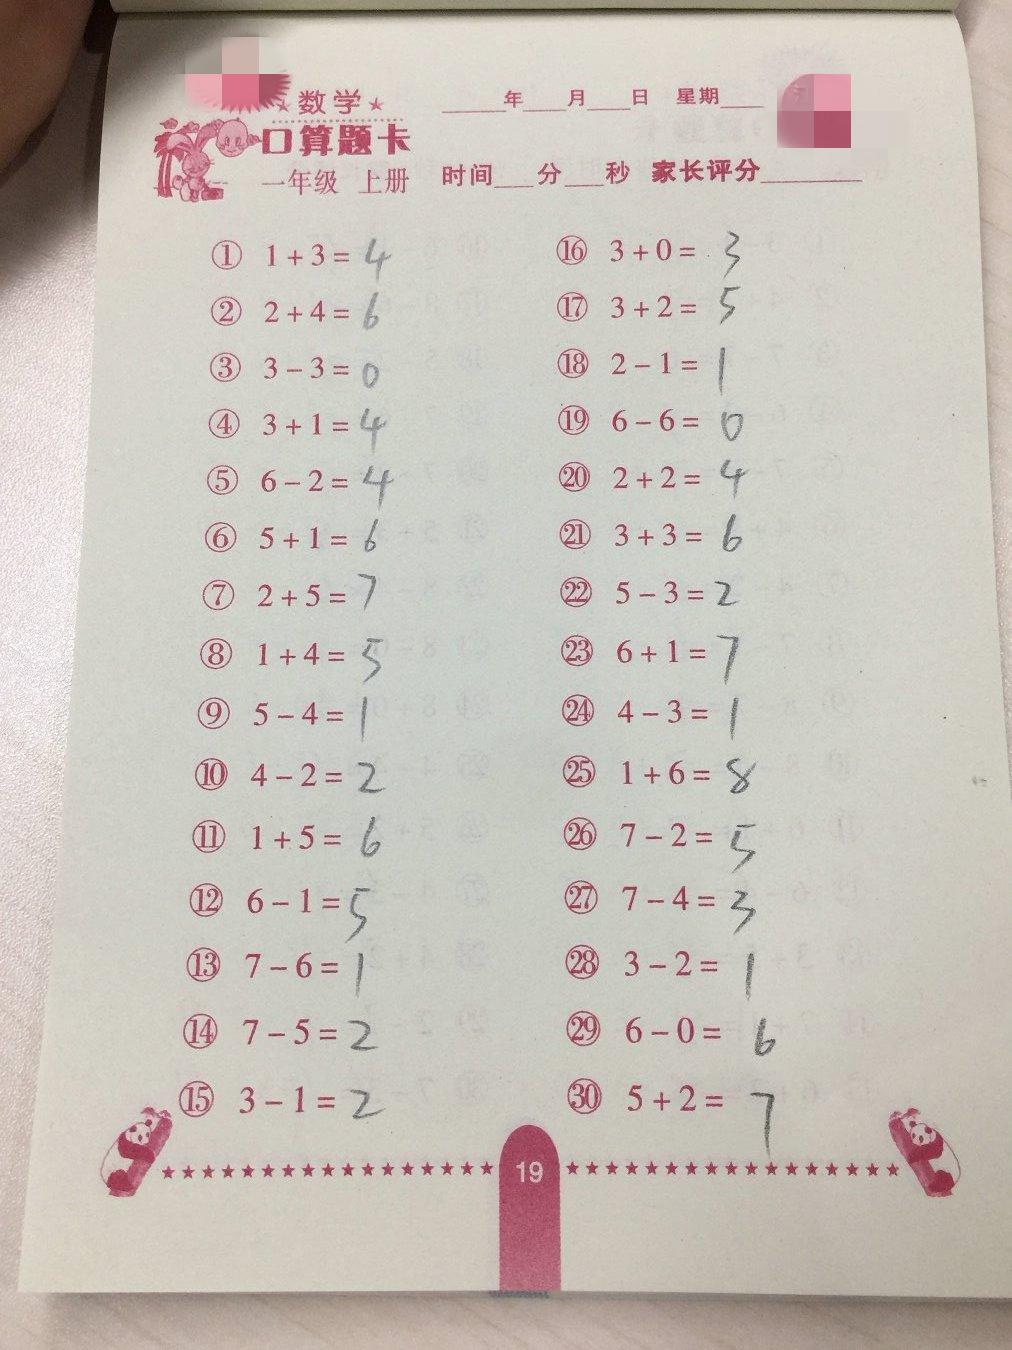 数学 ____年____月____日 星期____
口算题卡
一年级 上册 时间____分____秒 家长评分________
① 1+3=4
② 2+4=6
③ 3-3=0
④ 3+1=4
⑤ 6-2=4
⑥ 5+1=6
⑦ 2+5=7
⑧ 1+4=5
⑨ 5-4=1
⑩ 4-2=2
⑪ 1+5=6
⑫ 6-1=5
⑬ 7-6=1
⑭ 7-5=2
⑮ 3-1=2
⑯ 3+0=3
⑰ 3+2=5
⑱ 2-1=1
⑲ 6-6=0
⑳ 2+2=4
㉑ 3+3=6
㉒ 5-3=2
㉓ 6+1=7
㉔ 4-3=1
㉕ 1+6=8
㉖ 7-2=5
㉗ 7-4=3
㉘ 3-2=1
㉙ 6-0=6
㉚ 5+2=7
19